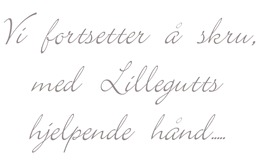 Vi fortsetter å skru,
med Lillegutts
hjelpende hånd.....